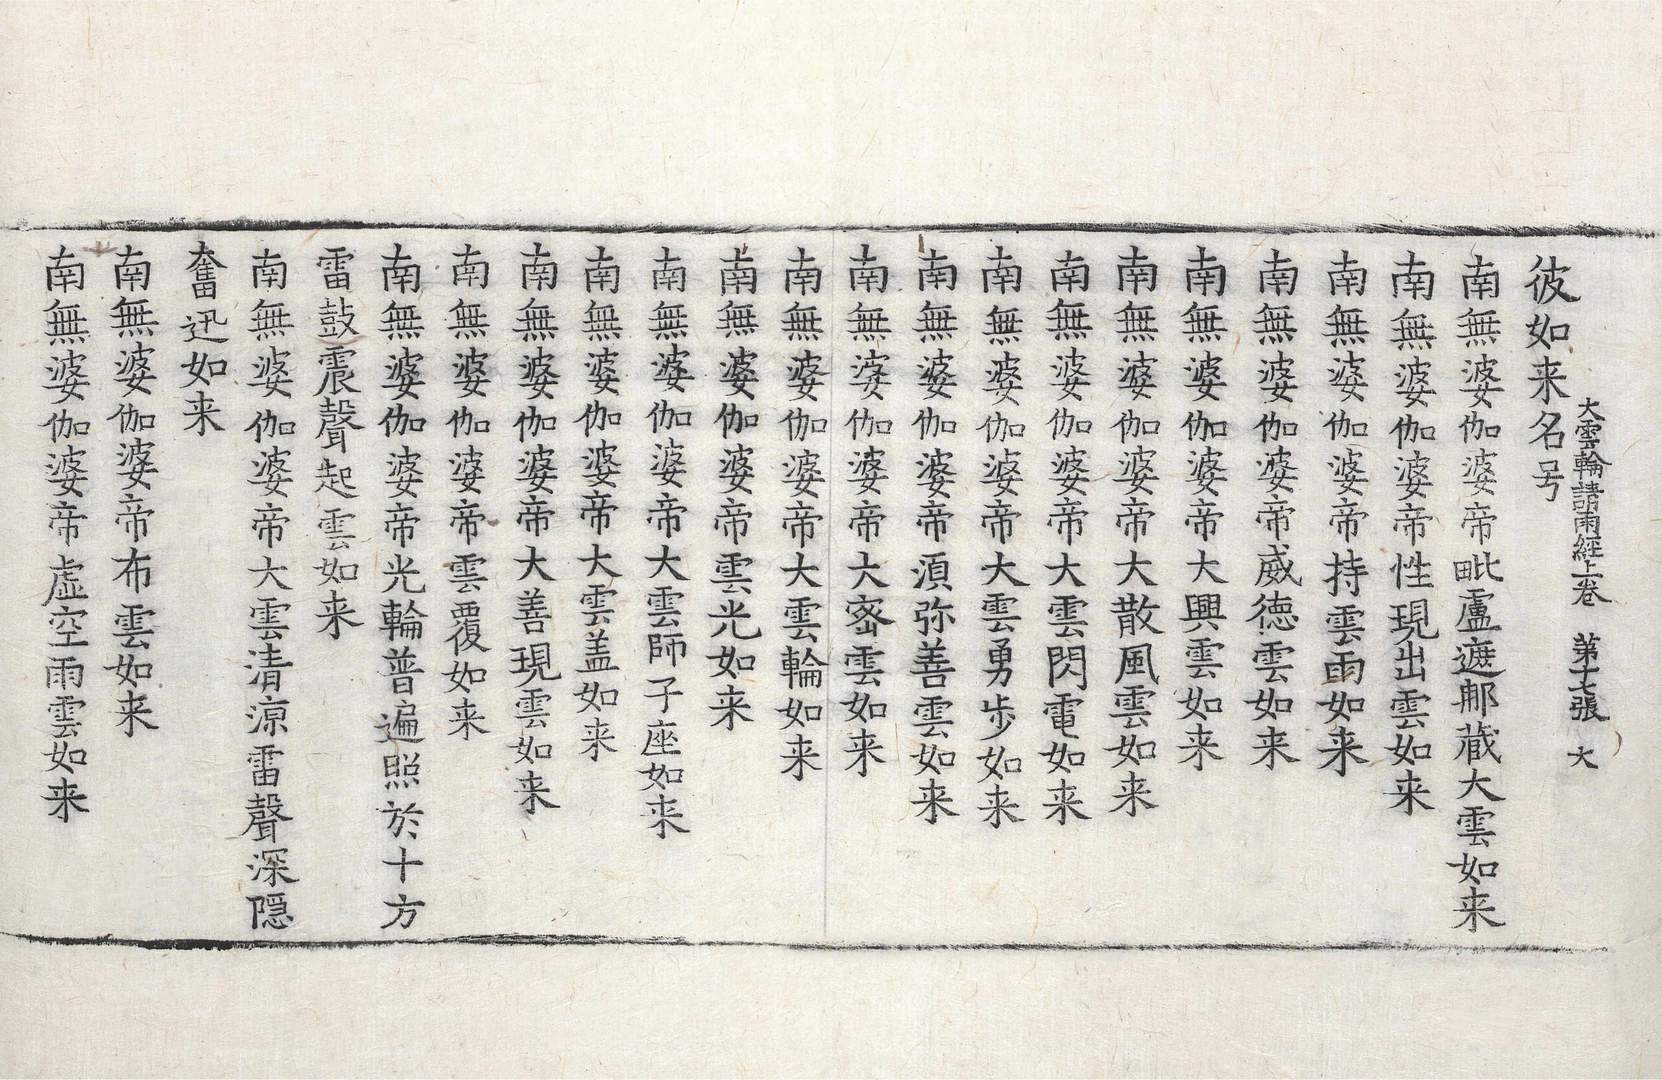 大雲輪請雨經上卷 第十七張 大
彼如来名号
南無婆伽婆帝毗盧遮𨚗蔵大雲如来
南無婆伽婆帝性現出雲如来
南無婆伽婆帝持雲雨如来
南無婆伽婆帝威徳雲如来
南無婆伽婆帝大興雲如来
南無婆伽婆帝大散風雲如来
南無婆伽婆帝大雲閃電如来
南無婆伽婆帝大雲勇歩如来
南無婆伽婆帝湏弥善雲如来
南無婆伽婆帝大宻雲如来
南無婆伽婆帝大雲輪如来
南無婆伽婆帝雲光如来
南無婆伽婆帝大雲師子座如来
南無婆伽婆帝大雲盖如来
南無婆伽婆帝大善現雲如来
南無婆伽婆帝雲覆如来
南無婆伽婆帝光輪普遍照於十方
雷鼓震聲起雲如来
南無婆伽婆帝大雲清涼雷聲深隠
奮迅如来
南無婆伽婆帝布雲如来
南無婆伽婆帝虚空雨雲如来